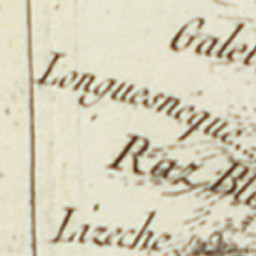 Galet
Longuesneque
Raz Bla
Lizeche